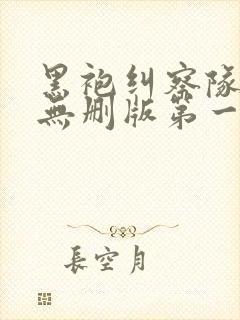 黑袍纠察队
無删版第一
長空月